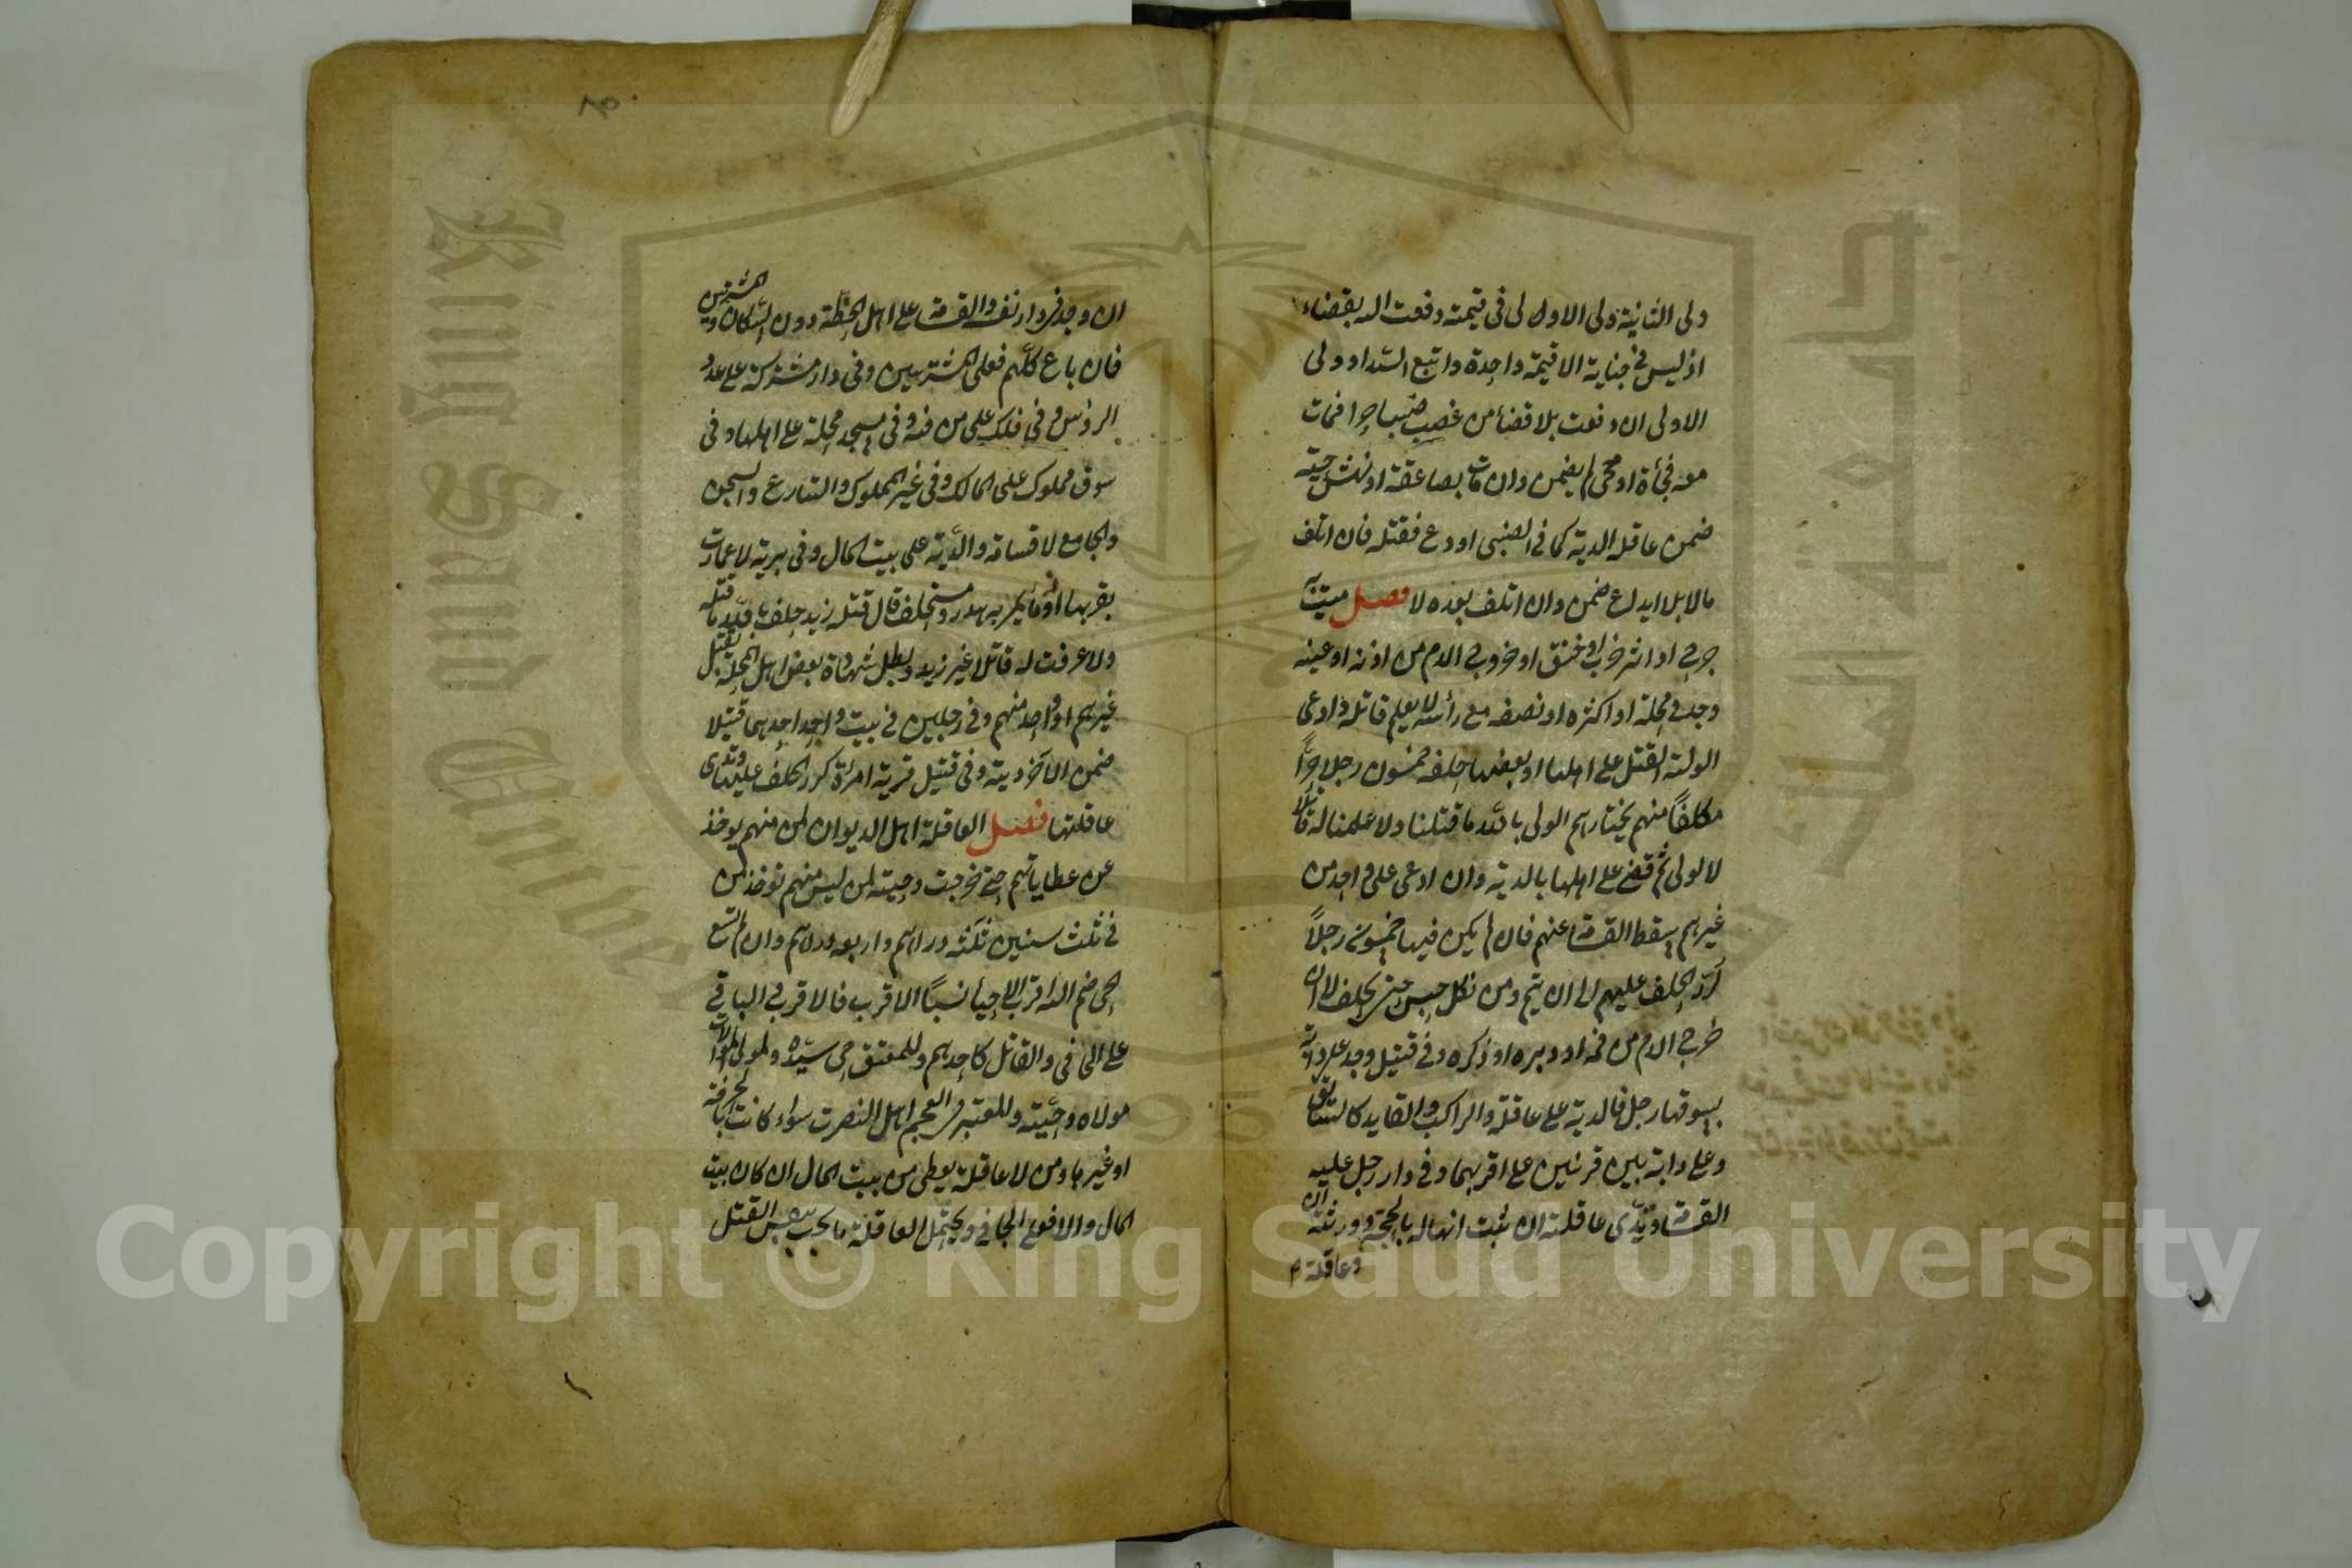 ولى الثانية ولى الاول لى فى قيمته دفعت اليه بقضاء
اذ ليس فى جناية الا قيمة واحدة واتبع السيد او ولى
الاولى ان دفعت بلا قضاء من غصب صبيا حرا فمات
معه فجأة او بحمى لم يضمن وان مات بصاعقة او نهش حية
ضمن عاقلة الدية كما فى الصبى اودع فقتله فان اتلف
مالا بلا ايداع ضمن وان اتلف بعده لا فصل ميت به
جرح او اثر ضرب او خنق او خروج الدم من اذنه او عينه
وجد فى محلة او اكثره او نصفه مع رأسه لا يعلم قاتله وادعى
الولى القتل على اهلها او بعضها حلف خمسون رجلا حرا
مكلفا منهم يختارهم الولى بالله ما قتلنا ولا علمنا له قاتلا
لا لولى ثم قضى على اهلها بالدية وان ادعى على واحد من
غيرهم يسقط القسامة عنهم فان لم يكن فيها خمسون رجلا
كرر الحلف عليهم الى ان يتم ومن نكل حبس حتى يحلف لا ان
خرج الدم من فمه او دبره او ذكره وفى قتيل وجد على دابة
يسوقها رجل فالدية على عاقلته والراكب والقايد كالسائق
وعلى دابة بين قريتين على اقربهما وفى دار رجل عليه
القسامة وتدى عاقلته ان ثبت انها له بالحجة وورثته ان
وعاقلته
ان وجد فى دار نفسه والقسامة على اهل الخطة دون السكان والمشترين
فان باع كلهم فعلى المشتريين وفى دار مشتركة على عدد
الرؤس وفى فلك على من فيه وفى مسجد محلة على اهلها وفى
سوق مملوك على المالك وفى غير المملوك والشارع والسجن
والجامع لا قسامة والدية على بيت المال وفى برية لا عمارت
بقربها او ماء يمر به هدر ومستحلف قال قتله زيد حلف بالله ما قتلته
ولا عرفت له قاتلا غير زيد وبطل شهادة بعض اهل المحلة بقتل
غيرهم او واحد منهم وفى رجلين فى بيت وجد احدهما قتيلا
ضمن الآخر ديته وفى قتيل قرية امرأة كرر الحلف عليها وتدى
عاقلتها فصل العاقلة اهل الديوان لمن منهم يوخذ
من عطاياتهم حتى خرجت وحيه لمن ليس منهم توخذ من
فى ثلث سنين ثلثه دراهم واربعه دراهم وان لم تتسع
الحى ضم اليه اقرب الاحياء نسبا الاقرب فالاقرب والباقى
على الجانى والقاتل كاحدهم وللمعتق حى سيده ولمولى الموالات
مولاه وحيه والمعتبر فى العجم اهل النصرت سواء كانت بالحرفة
او غيرها ومن لا عاقلة يعطى من بيت المال ان كان بيت
المال والا فعلى الجانى ويحتمل العاقلة ما يجب بنفس القتل